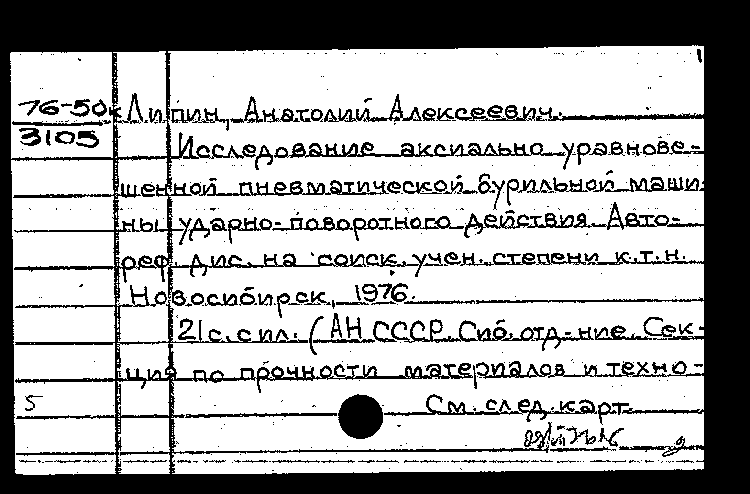 76-50к Липин, Анатолий Алексеевич.
3105
Исследование аксиально уравнове-
шенной пневматической бурильной маши-
ны ударно-поворотного действия. Авто-
реф. дис. на соиск. учен. степени к.т.н.
Новосибирск, 1976.
21 с. с ил. (АН СССР. Сиб. отд-ние. Сек-
ция по прочности материалов и техно-
5 См. след. карт.